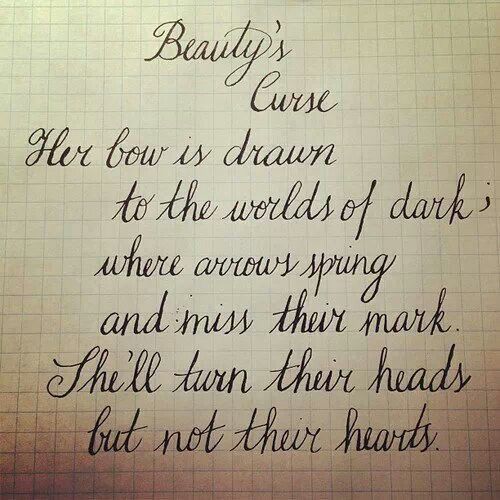 Beauty's
Curse
Her bow is drawn
to the worlds of dark;
where arrows spring
and miss their mark.
She'll turn their heads
but not their hearts.